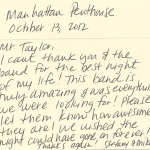 Manhattan Penthouse
October 13, 2012
Mr. Taylor,
I cant thank you & the
band for the best night
of my life! This band is
truly amazing & was everything
we were looking for! Please
let them know how awesome
they are! We wished the
night could have gone on forever!
Thanks again!